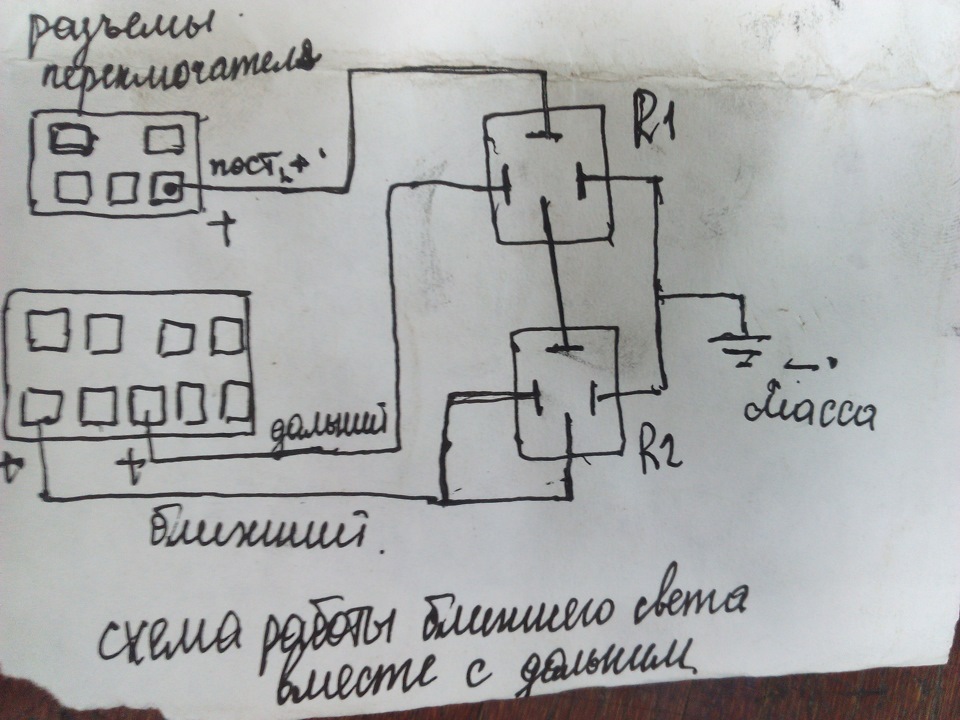 разъемы
переключателя
R1
пост. „+"
+
„-"
Масса
дальний
+
+
R2
ближний.
схема работы ближнего света
вместе с дальним